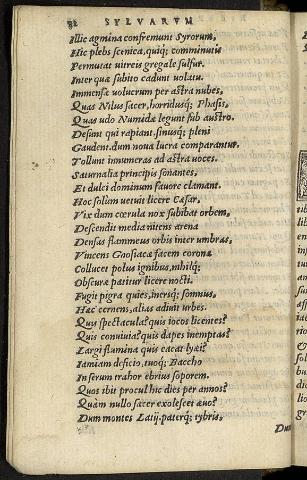 SYLVARVM
Illic agmina confremunt Syrorum,
Hic plebs scenica, quiq; comminutis
Permutat uitreis gregale sulfur.
Inter quæ subito cadunt uolatu.
Immensæ uolucrum per astra nubes,
Quas Nilus sacer, horridusq; Phasis,
Quas udo Numidæ legunt sub austro.
Desunt qui rapiant. sinusq; pleni
Gaudent. dum noua lucra comparantur.
Tollunt innumeras ad astra uoces.
Saturnalia principis sonantes,
Et dulci dominum fauore clamant.
Hoc solum uetuit licere Cæsar,
Vix dum cœrula nox subibat orbem,
Descendit media nitens arena
Densas flammeus orbis inter umbras,
Vincens Gnosiacæ facem coronæ
Collucet polus ignibus, nihilq;
Obscuræ patitur licere nocti.
Fugit pigra quies, inersq; somnus,
Hæc cernens, alias adiuit urbes.
Quis spectacula? quis iocos licentes?
Quis conuiuia? quis dapes inemptas?
Largi flumina quis cacat lyæi?
Iamiam deficio, tuoq; Baccho
In serum trahor ebrius soporem.
Quos ibit procul hic dies per annos?
Quàm nullo sacer exolescet æuo?
Dum montes Latij, paterq; tybris,
Dum